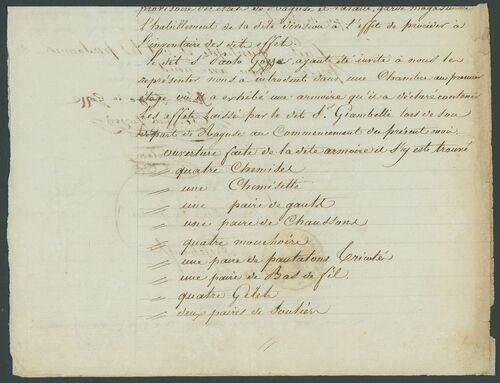 provisoire des états de Raguse et Cattaro, garde magasin de
l'habillement de la dite division à l'effet de procéder à
l'inventaire des dit effet.
Le dit Sr. Paolo ayant été invité à nous les
représenter nous a introduit dans une Chambre au premier
étage où il a exhibé une armoire qu'il a déclaré contenir
les effets laissé par le dit Sr. Giambelle lors de son
départ de Raguse au Commencement du présent moi.
ouverture faite de la dite armoire il s'y est trouvé
quatre Chemises
une Chemisette
une paire de gants
une paire de Chaussons
quatre mouchoirs
une paire de pantalons tricoté
une paire de Bas de fil.
quatre Gilets
deux paires de Souliers